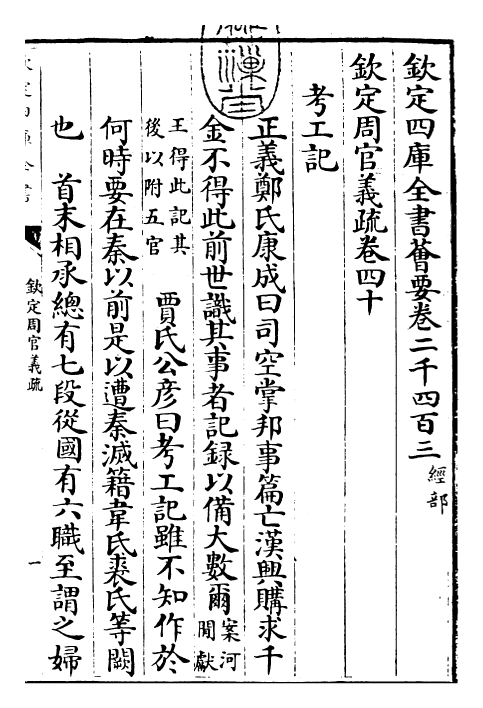 欽定四庫全書薈要卷二千四百三 經部
欽定周官義疏卷四十
考工記
正義鄭氏康成曰司空掌邦事篇亡漢興購求千
金不得此前世識其事者記録以備大數爾 案河間獻
王得此記其後以附五官 賈氏公彦曰考工記雖不知作於
何時要在秦以前是以遭秦滅籍韋氏裘氏等闕
也 首末相承總有七段從國有六職至謂之婦
欽定周官義疏
一